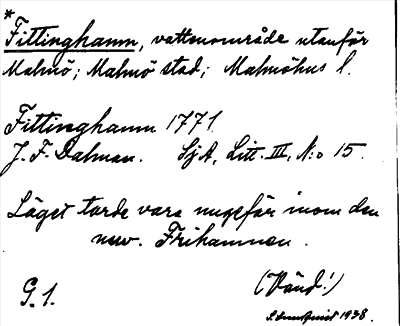 *
Fittinghamn, vattenområde utanför
Malmö; Malmö stad; Malmöhus l.
Fittinghamn 1771.
J. F. Dalman. SjA, Litt. III, N:o 15.
Läget torde vara ungefär inom den
nuv. Frihamnen.
G. 1. (Vänd!)
1938.